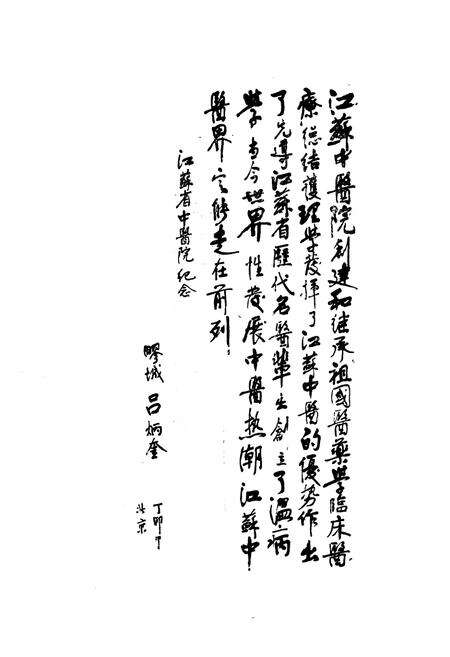 江蘇中醫院創建和继承祖國醫藥學臨床醫
療总结護理学發揮了江蘇中醫的優势作出
了先導江蘇省歷代名醫輩出創立了温病
学当今世界性發展中醫热潮江蘇中
醫界定能走在前列:
江蘇省中醫院纪念
吕炳奎
丁卯
北京